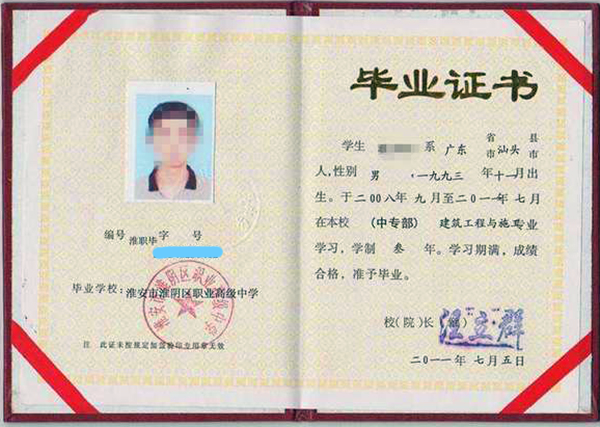 编号 淮职毕 字 号
毕业学校: 淮安市淮阴区职业高级中学
淮安市淮阴区职业高级中学
注 此证未按规定加盖验印专用章无效
毕业证书
学生 系 广东 省市 汕头 县市
人,性别 男 ,一九九三 年十一月出
生。于二00八年九月至二0一一年七月
在本校 (中专部) 建筑工程与施工专业
学习,学制 叁 年。学习期满,成绩
合格,准予毕业。
校(院)长 汪立群
二0一一年七月五日